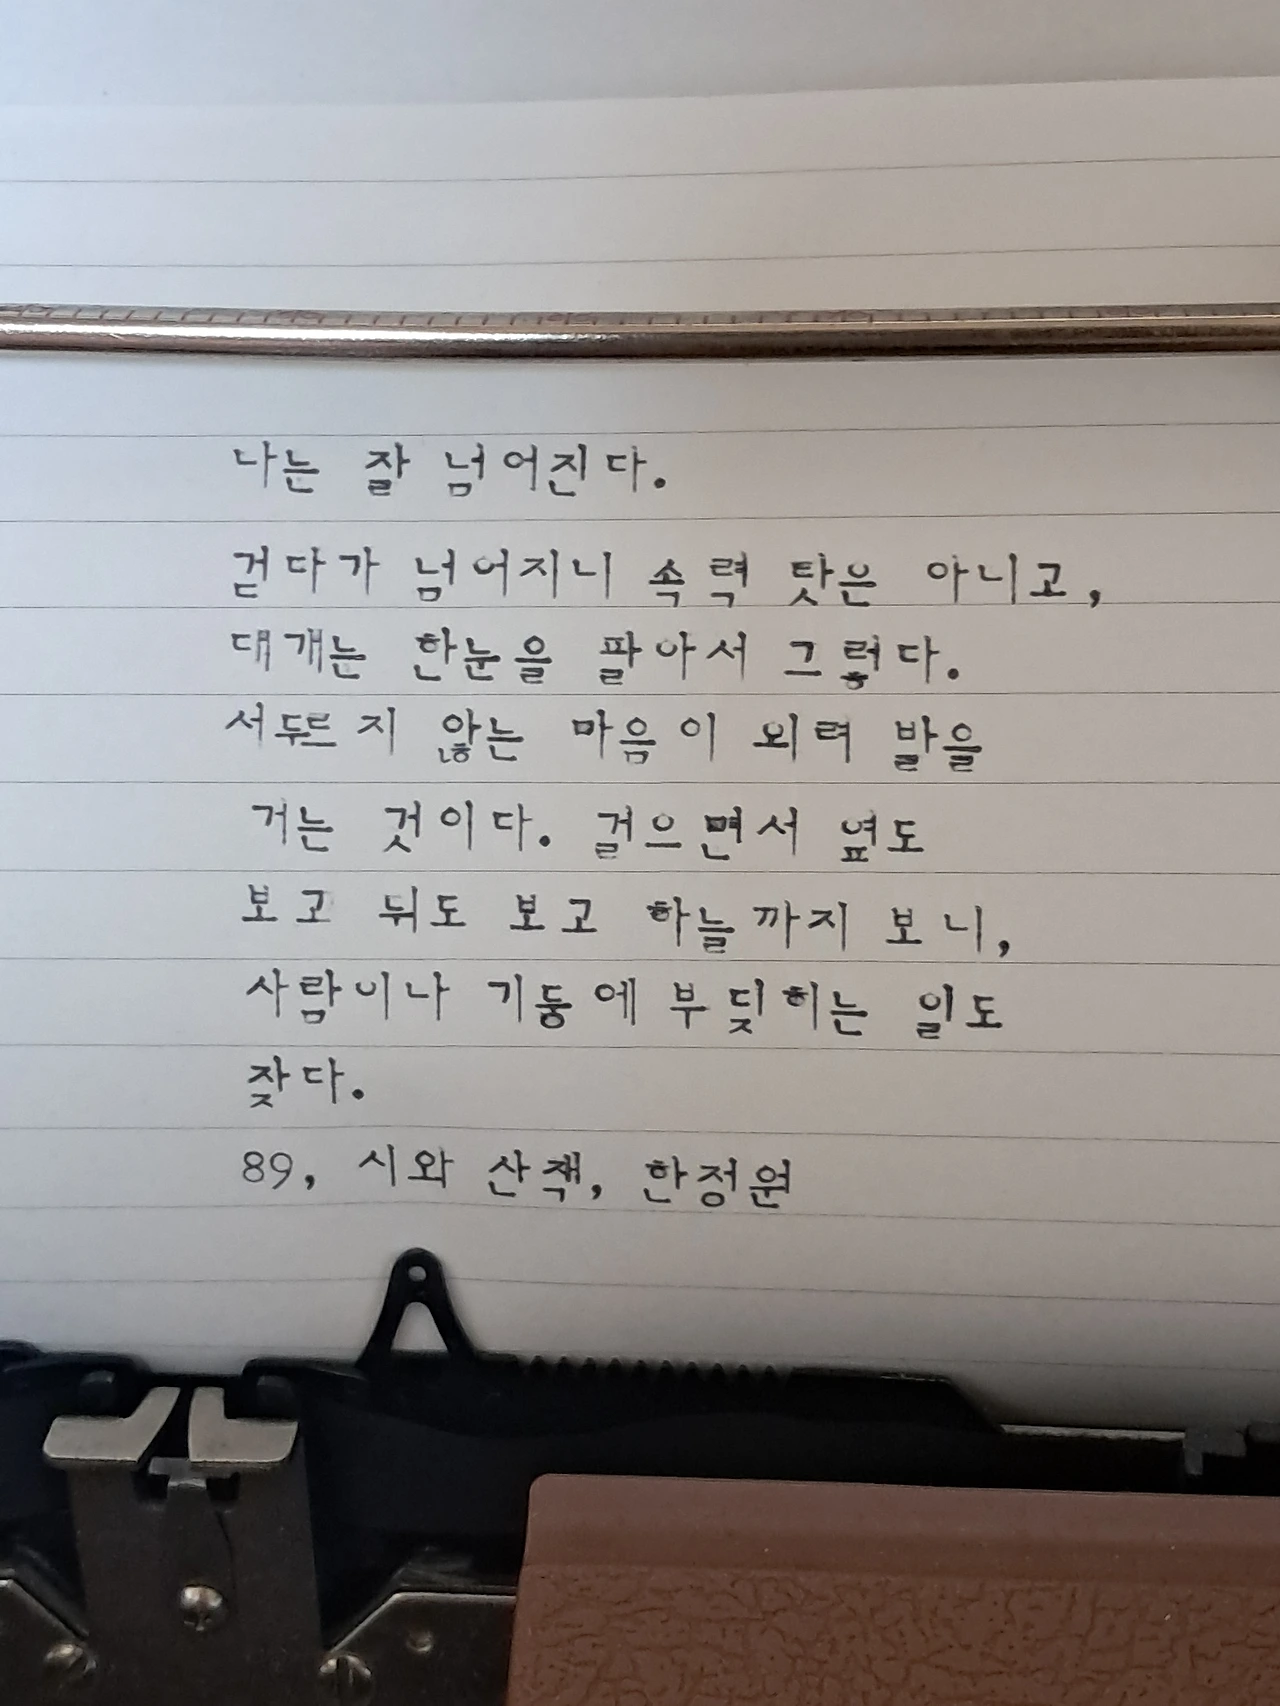 나는 잘 넘어진다.
걷다가 넘어지니 속력 탓은 아니고,
대개는 한눈을 팔아서 그렇다.
서두르지 않는 마음이 외려 발을
거는 것이다. 걸으면서 옆도
보고 뒤도 보고 하늘까지 보니,
사람이나 기둥에 부딪히는 일도
잦다.
89, 시와 산책, 한정원